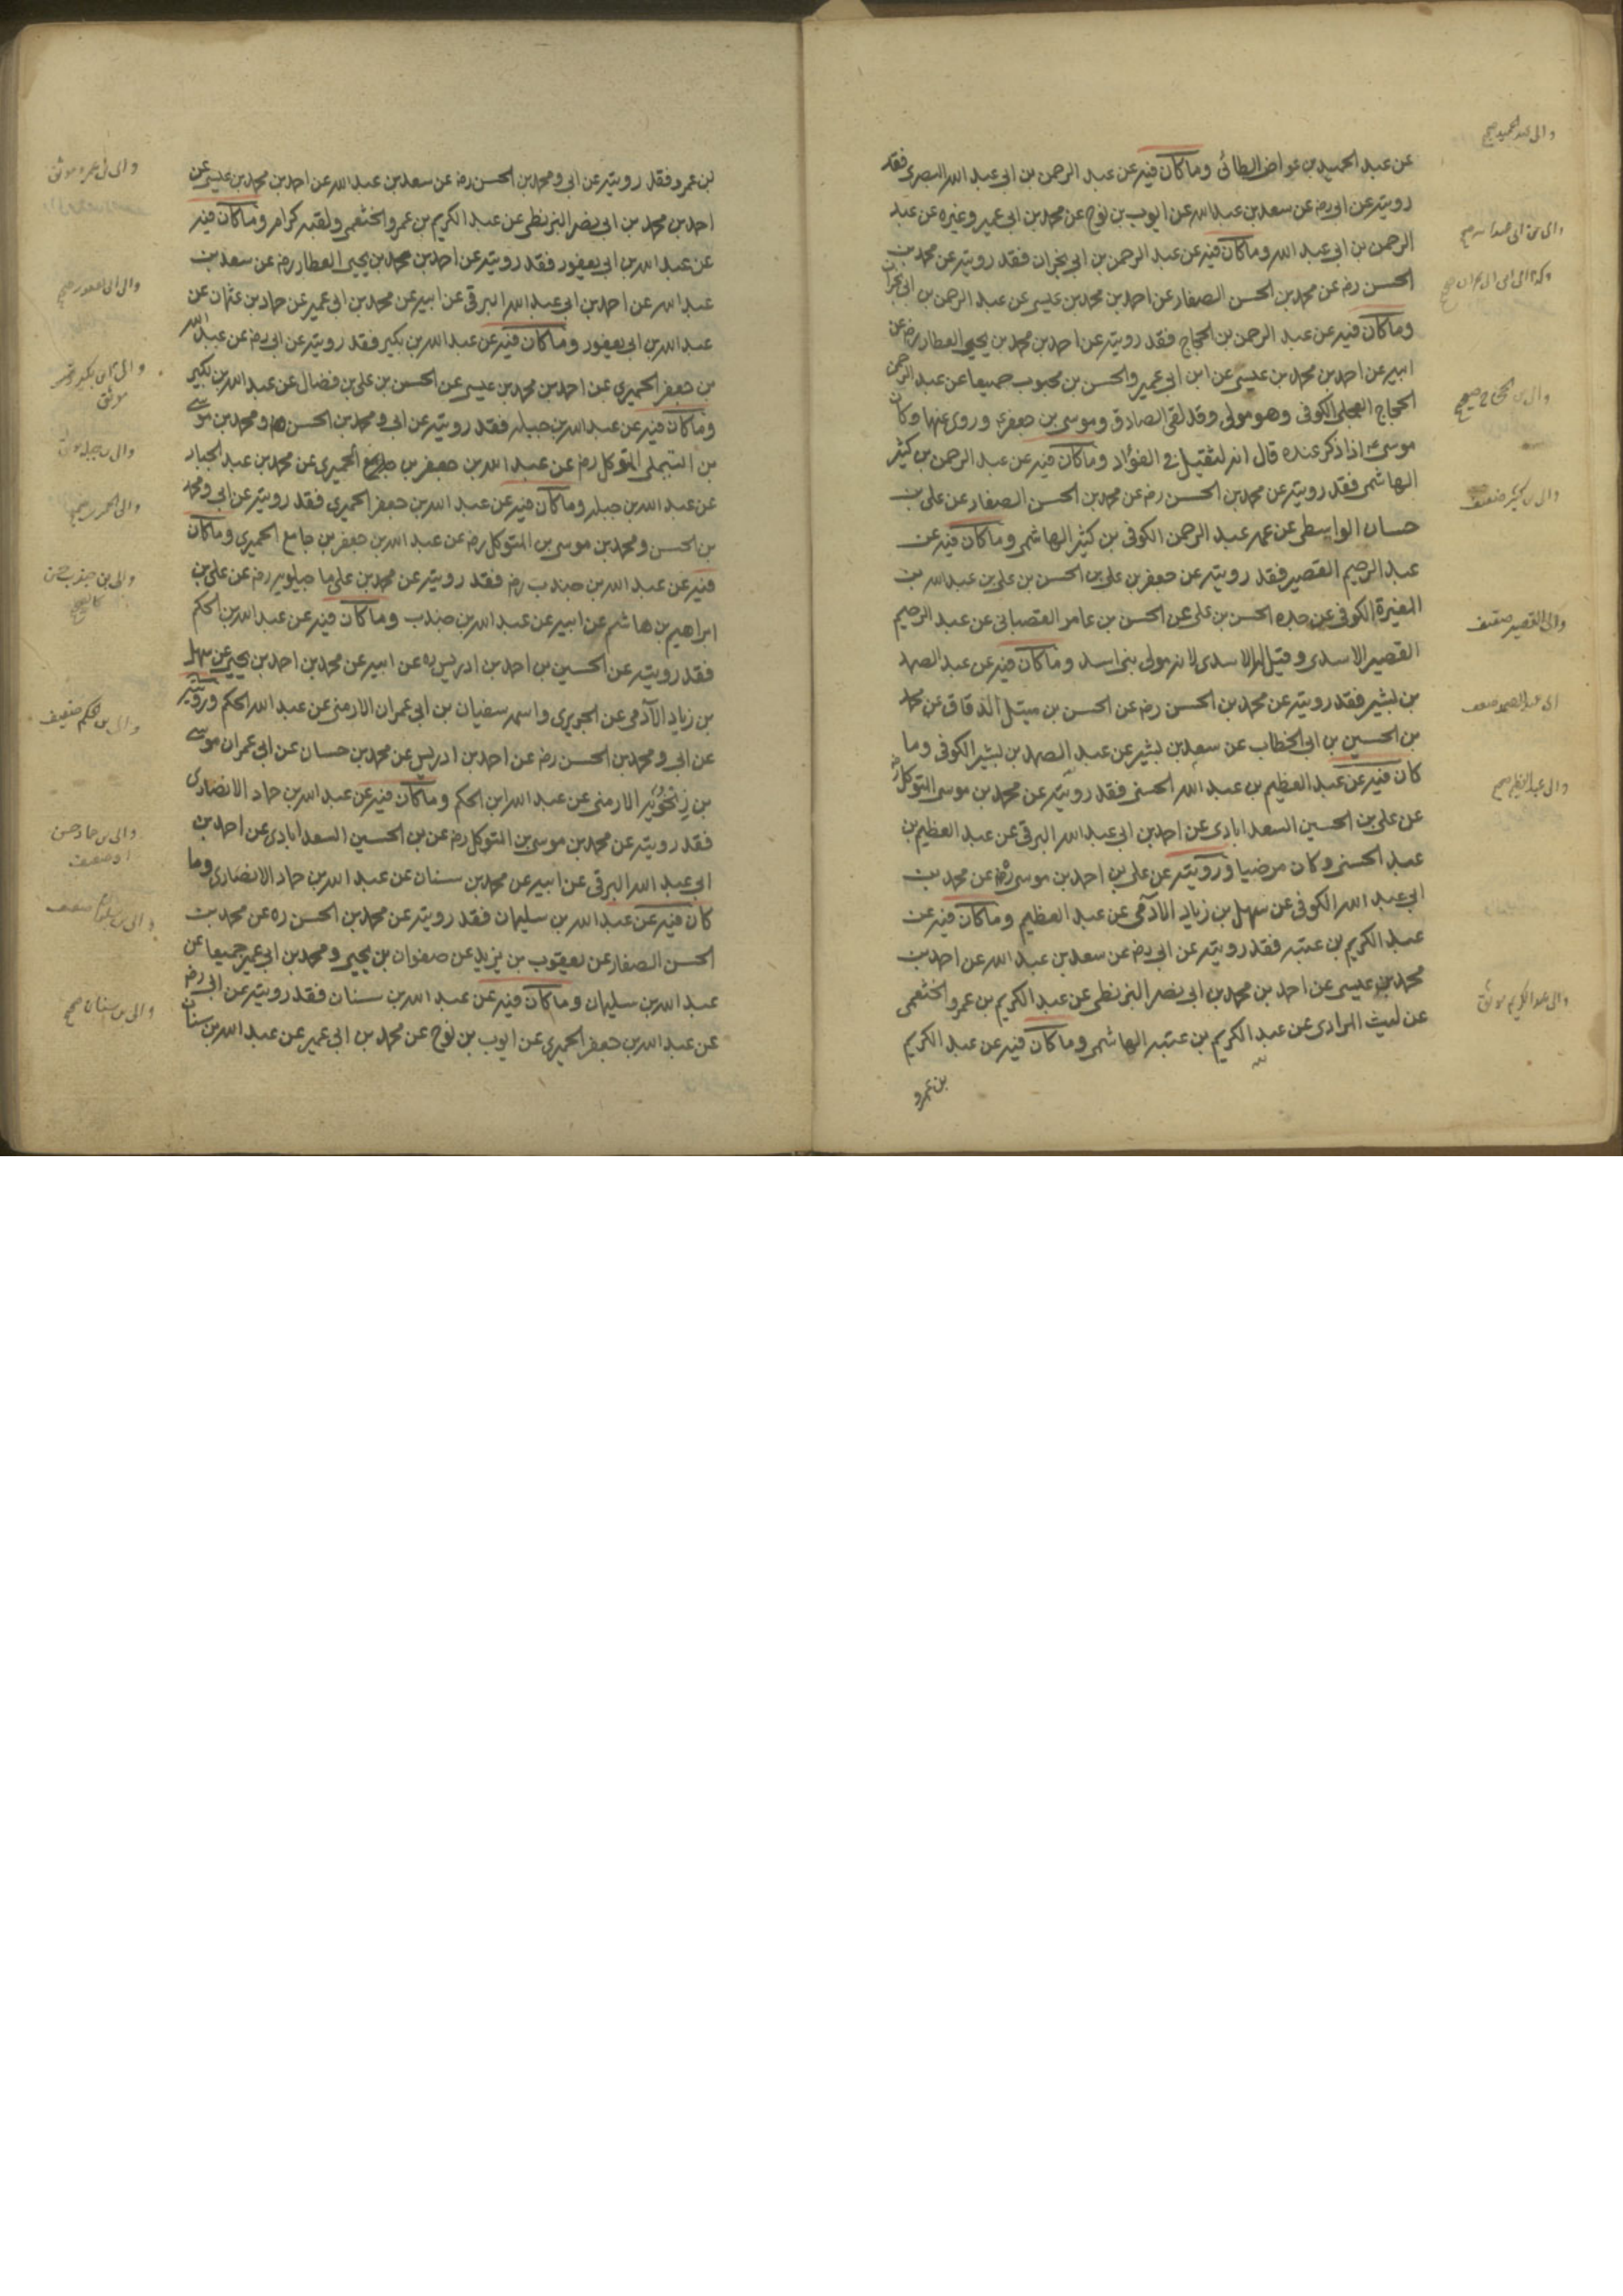 عن عبد الحميد بن عواض الطائى وما كان فيه عن عبد الرحمن بن ابى عبد الله البصرى فقد
رويته عن ابى رضه عن سعد بن عبد الله عن ايوب بن نوح عن محمد بن ابى عمير وغيره عن عبد
الرحمن بن ابى عبد الله وما كان فيه عن عبد الرحمن بن ابى نجران فقد رويته عن محمد بن
الحسن رضه عن محمد بن الحسن الصفار عن احمد بن محمد بن عيسى عن عبد الرحمن بن ابى نجران
وما كان فيه عن عبد الرحمن بن الحجاج فقد رويته عن احمد بن محمد بن يحيى العطار رضه عن
ابيه عن احمد بن محمد بن عيسى عن ابن ابى عمير والحسن بن محبوب جميعا عن عبد الرحمن
الحجاج البجلى الكوفى وهو مولى وقد لقى الصادق وموسى بن جعفر ع وروى عنهما وكان
موسى ع اذا ذكر عنده قال انه لثقيل فى الفؤاد وما كان فيه عن عبد الرحمن بن كثير
الهاشمى فقد رويته عن محمد بن الحسن رضه عن محمد بن الحسن الصفار عن على بن
حسان الواسطى عن عمه عبد الرحمن الكوفى بن كثير الهاشمى وما كان فيه عن
عبد الرحيم القصير فقد رويته عن جعفر بن على بن الحسن بن على بن عبد الله بن
المغيرة الكوفى عن جده الحسن بن على عن الحسن بن عامر القصبانى عن عبد الرحيم
القصير الاسدى وقيل له الاسدى لانه مولى بنى اسد وما كان فيه عن عبد الصمد
بن بشير فقد رويته عن محمد بن الحسن رضه عن الحسن بن متيل الدقاق عن محمد
بن الحسين بن ابى الخطاب عن سعد بن بشير عن عبد الصمد بن بشير الكوفى وما
كان فيه عن عبد العظيم بن عبد الله الحسنى فقد رويته عن محمد بن موسى المتوكل رضه
عن على بن الحسين السعدابادى عن احمد بن ابى عبد الله البرقى عن عبد العظيم بن
عبد الحسنى وكان مرضيا ورويته عن على بن احمد بن موسى رضه عن محمد بن
ابى عبد الله الكوفى عن سهل بن زياد الادمى عن عبد العظيم وما كان فيه عن
عبد الكريم بن عتبه فقد رويته عن ابى رضه عن سعد بن عبد الله عن احمد بن
محمد بن عيسى عن احمد بن محمد بن ابى نصر البزنطى عن عبد الكريم بن عمرو الخثعمى
عن ليث المرادى عن عبد الكريم بن عتبه الهاشمى وما كان فيه عن عبد الكريم
بن عمرو
والى عبد الحميد صحيح
والى بن ابى عبد الله صحيح
والى بن الحجاج صحيح
والى بن كثير ضعيف
والى القصير ضعيف
الى عبد الصمد ضعيف
والى عبد العظيم صحيح
والى عبد الكريم موثق
بن عمرو فقد رويته عن ابى ومحمد بن الحسن رضه عن سعد بن عبد الله عن احمد بن محمد بن عيسى عن
احمد بن محمد بن ابى نصر البزنطى عن عبد الكريم بن عمرو الخثعمى ولقبه كرام وما كان فيه
عن عبد الله بن ابى يعفور فقد رويته عن احمد بن محمد بن يحيى العطار رضه عن سعد بن
عبد الله عن احمد بن ابى عبد الله البرقى عن ابيه عن محمد بن ابى عمير عن حماد بن عثمان عن
عبد الله بن ابى يعفور وما كان فيه عن عبد الله بن بكير فقد رويته عن ابى رضه عن عبد الله
بن جعفر الحميرى عن احمد بن محمد بن عيسى عن الحسن بن على بن فضال عن عبد الله بن بكير
وما كان فيه عن عبد الله بن جبله فقد رويته عن ابى ومحمد بن الحسن ومحمد بن موسى
بن المتوكل رضه عن عبد الله بن جعفر بن جامع الحميرى عن محمد بن عبد الجبار
عن عبد الله بن جبله وما كان فيه عن عبد الله بن جعفر الحميرى فقد رويته عن ابى ومحمد
بن الحسن ومحمد بن موسى بن المتوكل رضه عن عبد الله بن جعفر بن جامع الحميرى وما كان
فيه عن عبد الله بن جندب رضه فقد رويته عن محمد بن على ما جيلويه رضه عن على بن
ابراهيم بن هاشم عن ابيه عن عبد الله بن جندب وما كان فيه عن عبد الله بن الحكم
فقد رويته عن الحسين بن احمد بن ادريس ره عن ابيه عن محمد بن احمد بن يحيى عن سهل
بن زياد الآدمى عن الجريرى واسمه سفيان بن ابى عمران الارمنى عن عبد الله الحكم ورويته
عن ابى ومحمد بن الحسن رضه عن احمد بن ادريس عن محمد بن حسان عن ابى عمران موسى
بن زنجويه الارمنى عن عبد الله ابن الحكم وما كان فيه عن عبد الله بن حماد الانصارى
فقد رويته عن محمد بن موسى بن المتوكل رضه عن بن الحسين السعدابادى عن احمد بن
ابى عبد الله البرقى عن ابيه عن محمد بن سنان عن عبد الله بن حماد الانصارى وما
كان فيه عن عبد الله بن سليمان فقد رويته عن محمد بن الحسن ره عن محمد بن
الحسن الصفار عن يعقوب بن يزيد عن صفوان بن يحيى ومحمد بن ابى عمير جميعا عن
عبد الله بن سليمان وما كان فيه عن عبد الله بن سنان فقد رويته عن ابى رضه
عن عبد الله بن جعفر الحميرى عن ايوب بن نوح عن محمد بن ابى عمير عن عبد الله بن سنان
والى بن عمرو موثق
والى ابى يعفور صحيح
موثق
والى بن جبله موثق
والى الحميرى صحيح
والى بن جندب حسن
كالصحيح
والى بن الحكم ضعيف
والى بن حماد حسن
او ضعيف
والى بن سنان صحيح